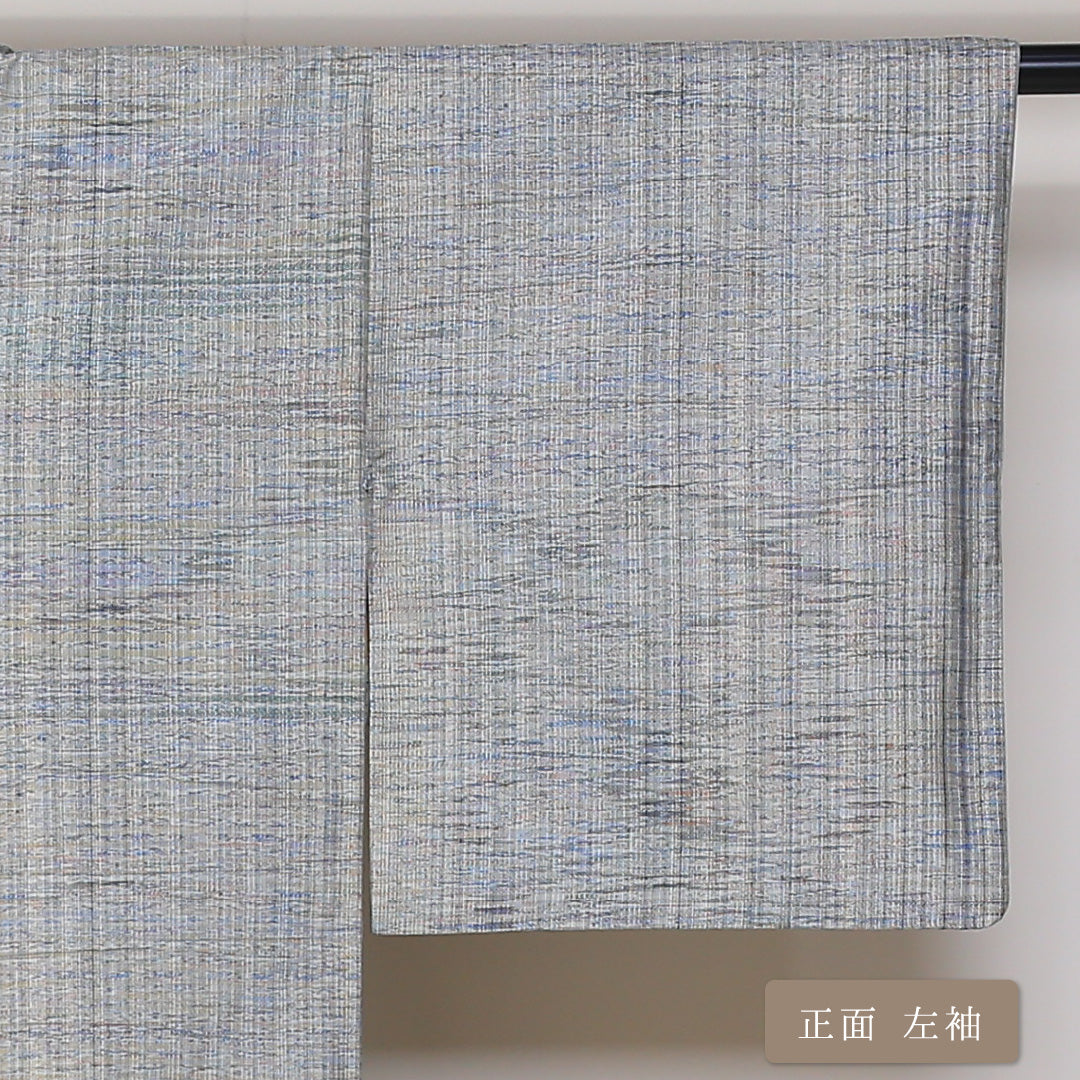 正面 左袖